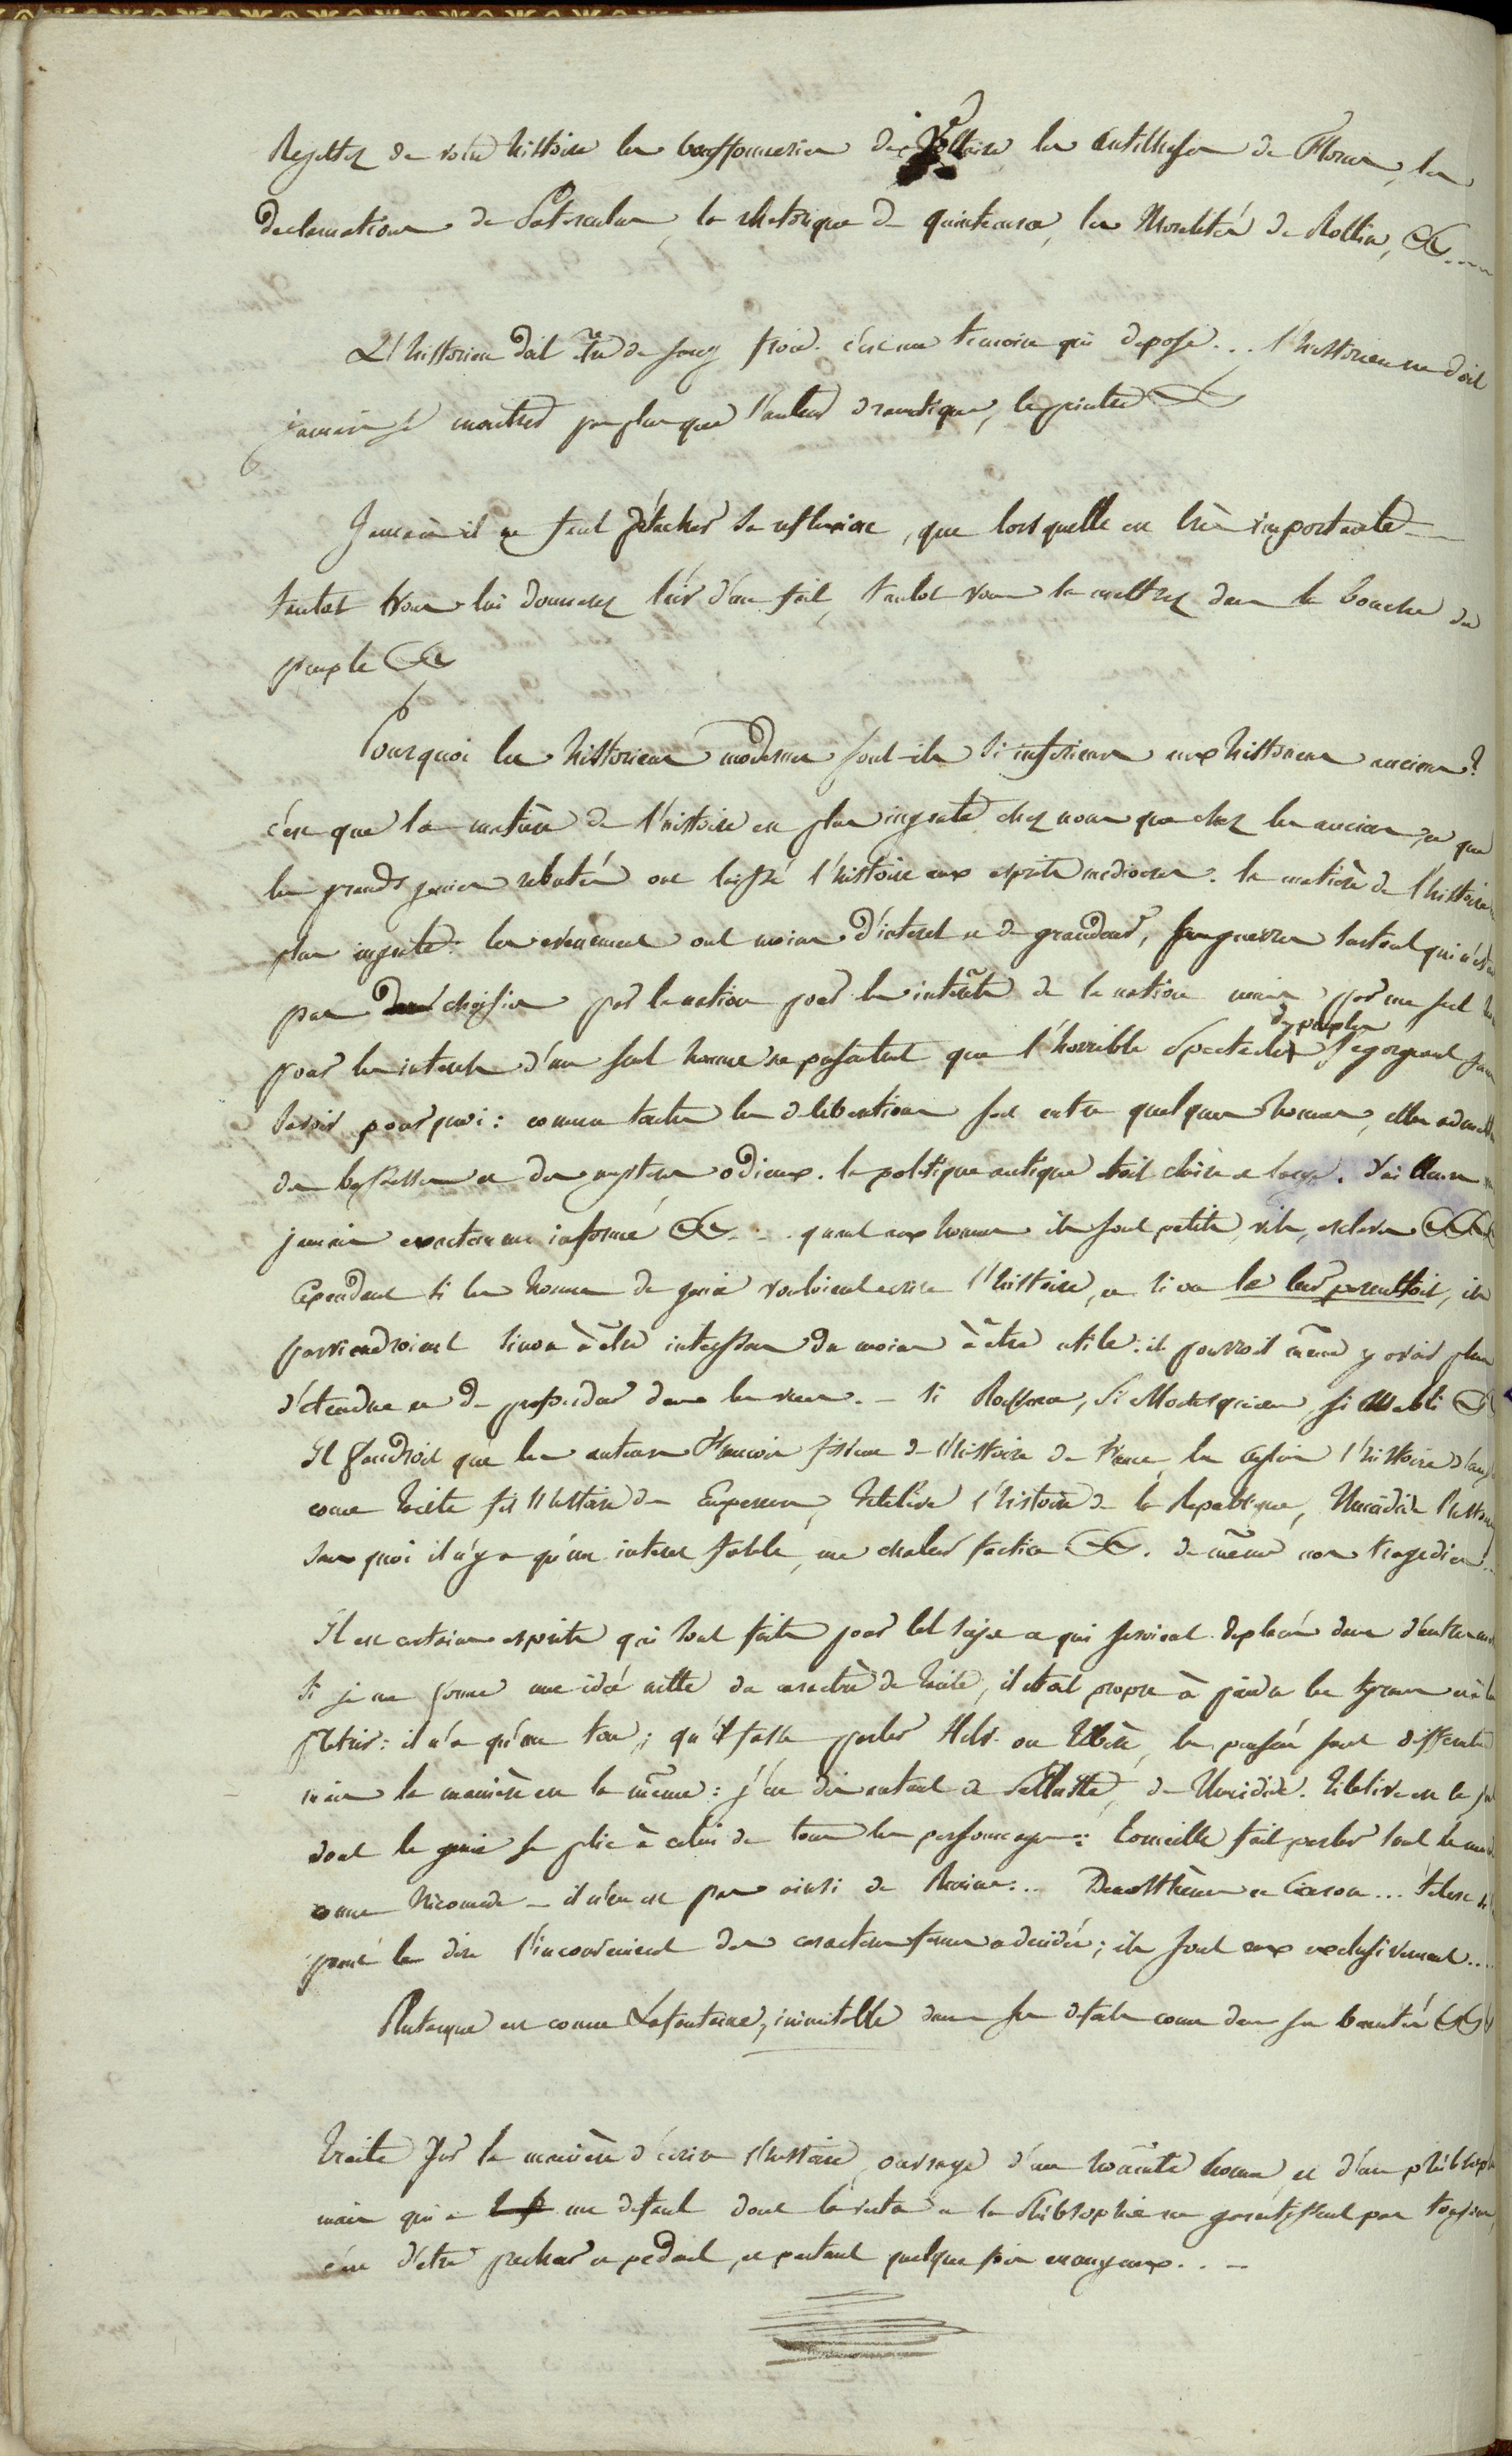 Rejettez de votre histoire les bouffonneries de Voltaire les antitheses de Florus, les
declamations de Paterculus, la rhetorique de quintecurce, les Moralités de Rollin, &....
L'historien doit être de sang froid. c'est un temoin qui depose... l'historien ne doit
jamais se montrer pas plus que l'auteur dramatique, le peintre &
Jamais il ne faut détacher sa reflexion, que lorsquelle est très importante —
tantot vous lui donnerez l'air d'un fait, tantot vous la mettrez dans la bouche du
peuple &
Pourquoi les historiens modernes sont-ils si inferieurs aux historiens anciens?
c'est que la matière de l'histoire est plus ingrate chez nous que chez les anciens, et que
les grands genies rebutés ont laissé l'histoire aux esprits mediocres. la matière de l'histoire
plus ingrate: les evenemens ont moins d'interet et de grandeur, les guerres surtout qui n'étant
pas choisies par la nation pour les intérêts de la nation mais par un seul
pour les interets d'un seul homme ne presentent que l'horrible spectacle de peuples s'egorgeant sans
savoir pourquoi: comme toutes les deliberations sont entre quelques hommes, elles admettent
des bassesses et des mysteres odieux. la politique antique étoit claire et large. d'ailleurs
jamais exactement informé &... quant aux hommes ils sont petits, vils, esclaves &&
Cependant si les hommes de genie vouloient ecrire l'histoire, et si on le leur permettoit, ils
parviendroient sinon à être interessans du moins à être utiles: il pourroit même y avoir plus
d'étendue et de profondeur dans les vues. — si Rousseau, si Montesquieu, si Mabli &
Il faudroit que les auteurs Français fissent de l'histoire de France, les anglais l'histoire d'ang
comme Tacite fit l'histoire des Empereurs, Titelive l'histoire de la Republique, Thucidide l'histoire
sans quoi il n'y a qu'un interet foible, une chaleur factice &. de même nos tragedies..
Il est certains esprits qui sont faits pour tel sujet et qui seroient deplacés dans d'autres
si je me forme une idée nette du caractère de Tacite, il étoit propre à peindre les tyrans et à les
fletrir: il n'a qu'un ton; qu'il fasse parler Helv. ou Tibère, les pensées sont differentes
mais la manière est la même: j'en dis autant de Salluste, de Thucidide. Titelive est le seul
dont le genie se plie à celui de tous les personnages: Corneille fait parler tout le monde
comme Nicomede — il n'en est pas ainsi de Racine... Demosthène et Ciceron... telest si
peut le dire l'inconvenient des caracteres fermes et decidés; ils sont eux exclusivement....
Plutarque est comme Lafontaine, inimitable dans ses defauts comme dans ses beautés &&
Traité sur la manière d'écrire l'histoire, ouvrage d'un honnête homme, et d'un philosophe
mais qui a un defaut dont la vertu et la Philosophie ne garantissent pas toujours,
c'est d'être precheur et pedant, et partant quelque fois ennuyeux...